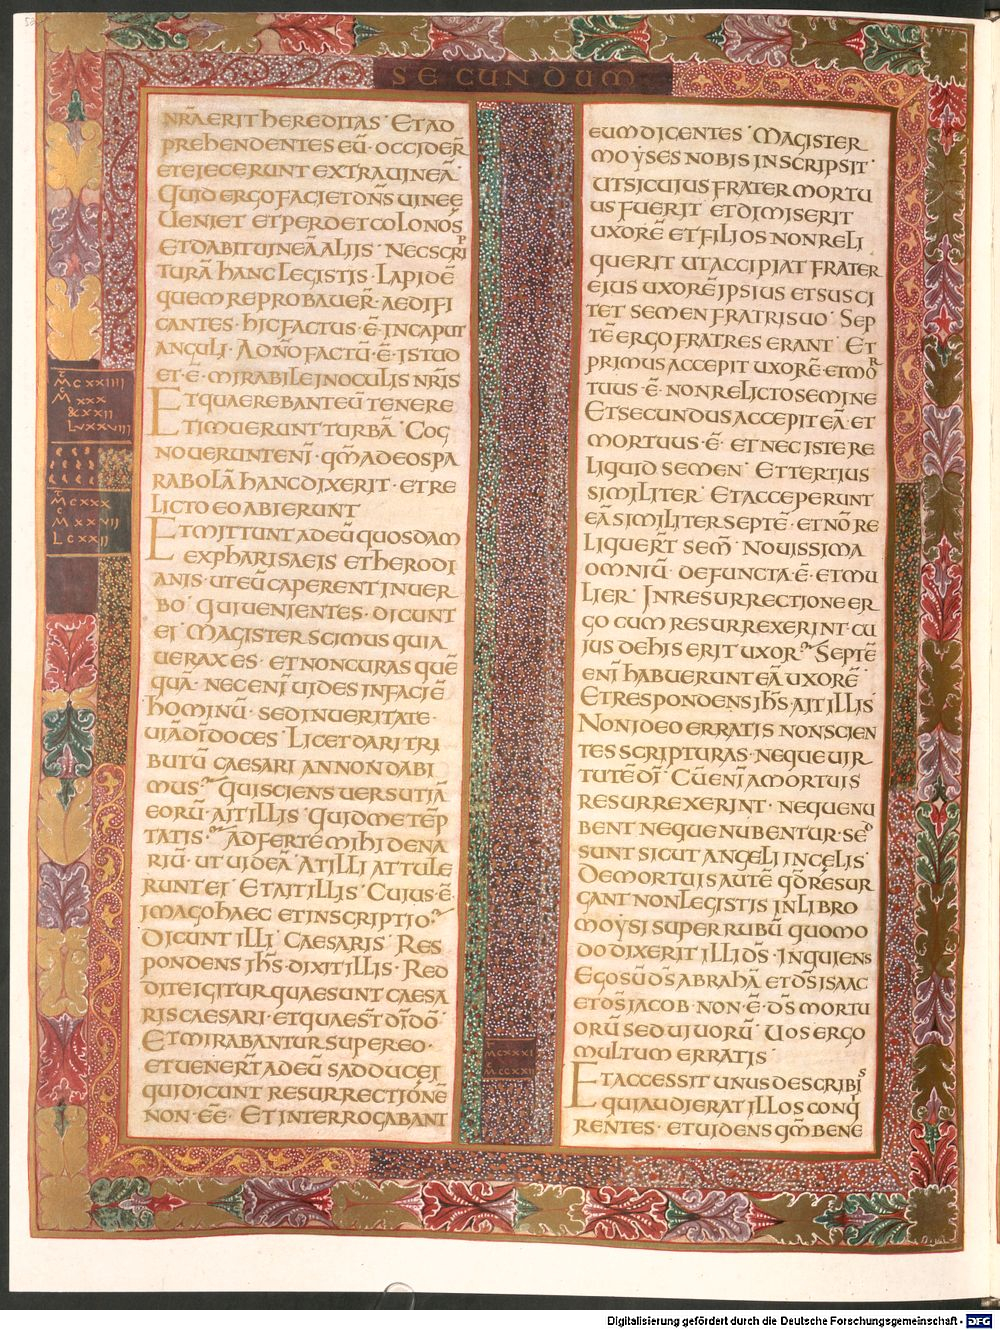 SECUNDUM
NR̄A ERIT HEREDITAS· ET AD
PREHENDENTES EŪ· OCCIDER̄
ET EJECERUNT EXTRA VINEĀ·
QUID ERGO FACIET DN̄S VINEE
VENIET ET PERDET COLONOS
ET DABIT VINEĀ ALIIS· NEC SCRIP
TURĀ HANC LEGISTIS· LAPIDĒ
QUEM REPROBAUER̄· AEDIFI
CANTES· HIC FACTUS· Ē· IN CAPUT
ANGULI· A DN̄O FACTŪ· Ē· ISTUD
ET· Ē· MIRABILE IN OCULIS NR̄IS
ET QUAEREBANT EŪ TENERE
ET IMUERUNT TURBĀ· COG
NOUERUNT ENĪ· QM̄ AD EOS PA
RABOLĀ HANC DIXERIT· ET RE
LICTO EO ABIERUNT
ET MITTUNT AD EŪ QUOSDAM
EX PHARISAEIS ET HERODI
ANIS· UT EŪ CAPERENT IN UER
BO· QUI UENIENTES· DICUNT
EI· MAGISTER SCIMUS QUIA
UERAX ES· ET NON CURAS QUĒ
QUĀ· NEC ENĪ UIDES IN FACIĒ
HOMINŪ· SED IN UERITATE·
UIĀ DĪ DOCES· LICET DARI TRI
BUTŪ CAESARI AN NON DABI
MUS· QUI SCIENS UERSUTIĀ
EORŪ· AIT ILLIS· QUID ME TĒP
TATIS· ADFERTE MIHI DENA
RIŪ· UT UIDEĀ· AT ILLI ATTULE
RUNT EI· ET AIT ILLIS· CUIUS· Ē·
IMAGO HAEC ET INSCRIPTIO·
DICUNT ILLI· CAESARIS· RES
PONDENS IHS̄· DIXIT ILLIS· RED
DITE IGITUR QUAE SUNT CAESA
RIS CAESARI· ET QUAE ST̄ DĪ DŌ·
ET MIRABANTUR SUPER EO·
ET UENER̄T AD EŪ SADDUCEI
QUI DICUNT RESURRECTIONĒ
NON· EĒ· ET INTERROGABANT
M̄CXXIIII
M̄XXX
&XXII
LVXXVIII
M̄CXXX
M̄XXVII
LCXXII
EUM DICENTES· MAGISTER
MOYSES NOBIS IN SCRIPSIT·
UT SI CUIUS FRATER MORTU
US FUERIT ET DIMISERIT
UXORĒ ET FILIOS NON RELI
QUERIT UT ACCIPIAT FRATER
EIUS UXORĒ IPSIUS ET SUSCI
TET SEMEN FRATRI SUO· SEP
TĒ ERGO FRATRES ERANT· ET
PRIMUS ACCEPIT UXORĒ· ET MOR
TUUS· Ē· NON RELICTO SEMINE
ET SECUNDUS ACCEPIT EĀ· ET
MORTUUS· Ē· ET NEC ISTE RE
LIQUID SEMEN· ET TERTIUS
SIMILITER· ET ACCEPERUNT
EĀ SIMILITER SEPTĒ· ET NŌ RE
LIQUER̄T SEM̄· NOUISSIMA
OMNIŪ· DEFUNCTA· Ē· ET MU
LIER· IN RESURRECTIONE ER
GO CUM RESURREXERINT· CU
IUS DE HIS ERIT UXOR· SEPTĒ
ENĪ HABUERUNT EĀ UXORĒ·
ET RESPONDENS IHS̄· AIT ILLIS
NON IDEO ERRATIS NON SCIEN
TES SCRIPTURAS· NEQUE UIR
TUTĒ DĪ· CŪ ENĪ A MORTUIS
RESURREXERINT· NEQUE NU
BENT NEQUE NUBENTUR· SED
SUNT SICUT ANGELI IN CĘLIS·
DE MORTUIS AUTĒ QD̄ RESUR
GANT NON LEGISTIS IN LIBRO
MOYSI SUPER RUBŪ QUOMO
DO DIXERIT ILLI DS̄· INQUIENS
EGO SŪ DS̄ ABRAHĀ ET DS̄ ISAAC
ET DS̄ JACOB· NON· Ē· DS̄ MORTU
ORŪ SED UIUORŪ· UOS ERGO
MULTUM ERRATIS·
ET ACCESSIT UNUS DE SCRIBIS
QUI AUDIERAT ILLOS CONQI
RENTES· ET UIDENS QM̄ BENE
MCXXXI
MCCXXII
Digitalisierung gefördert durch die Deutsche Forschungsgemeinschaft - DFG